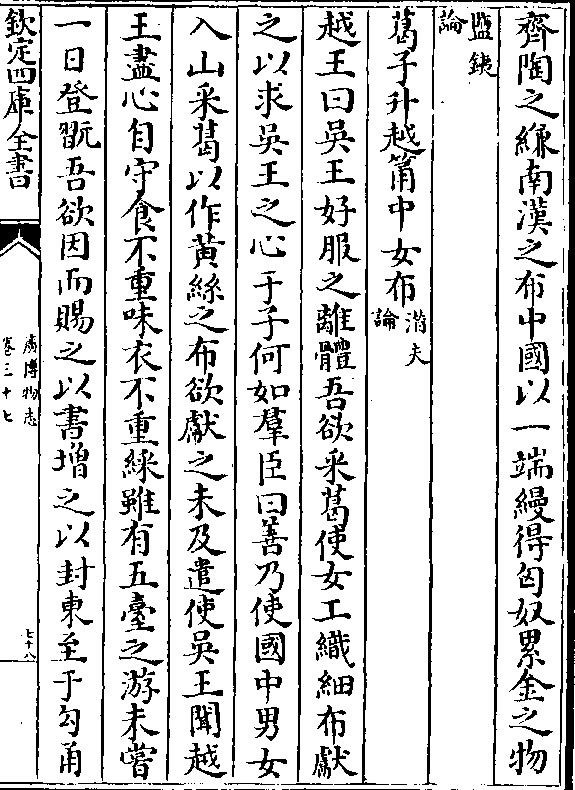 齊陶之縑南漢之布中國以一端縵得匈奴累金之物
鹽鐵
論
葛子升越筩中女布潛夫
論
越王曰吳王好服之離體吾欲采葛使女工織細布獻
之以求吳王之心于子何如羣臣曰善乃使國中男女
入山采葛以作黃絲之布欲獻之未及遣使吳王聞越
王盡心自守食不重味衣不重綵雖有五臺之游未嘗
一日登翫吾欲因而賜之以書增之以封東至于勾甬
欽定四庫全書
廣博物志
卷三十七
七十八